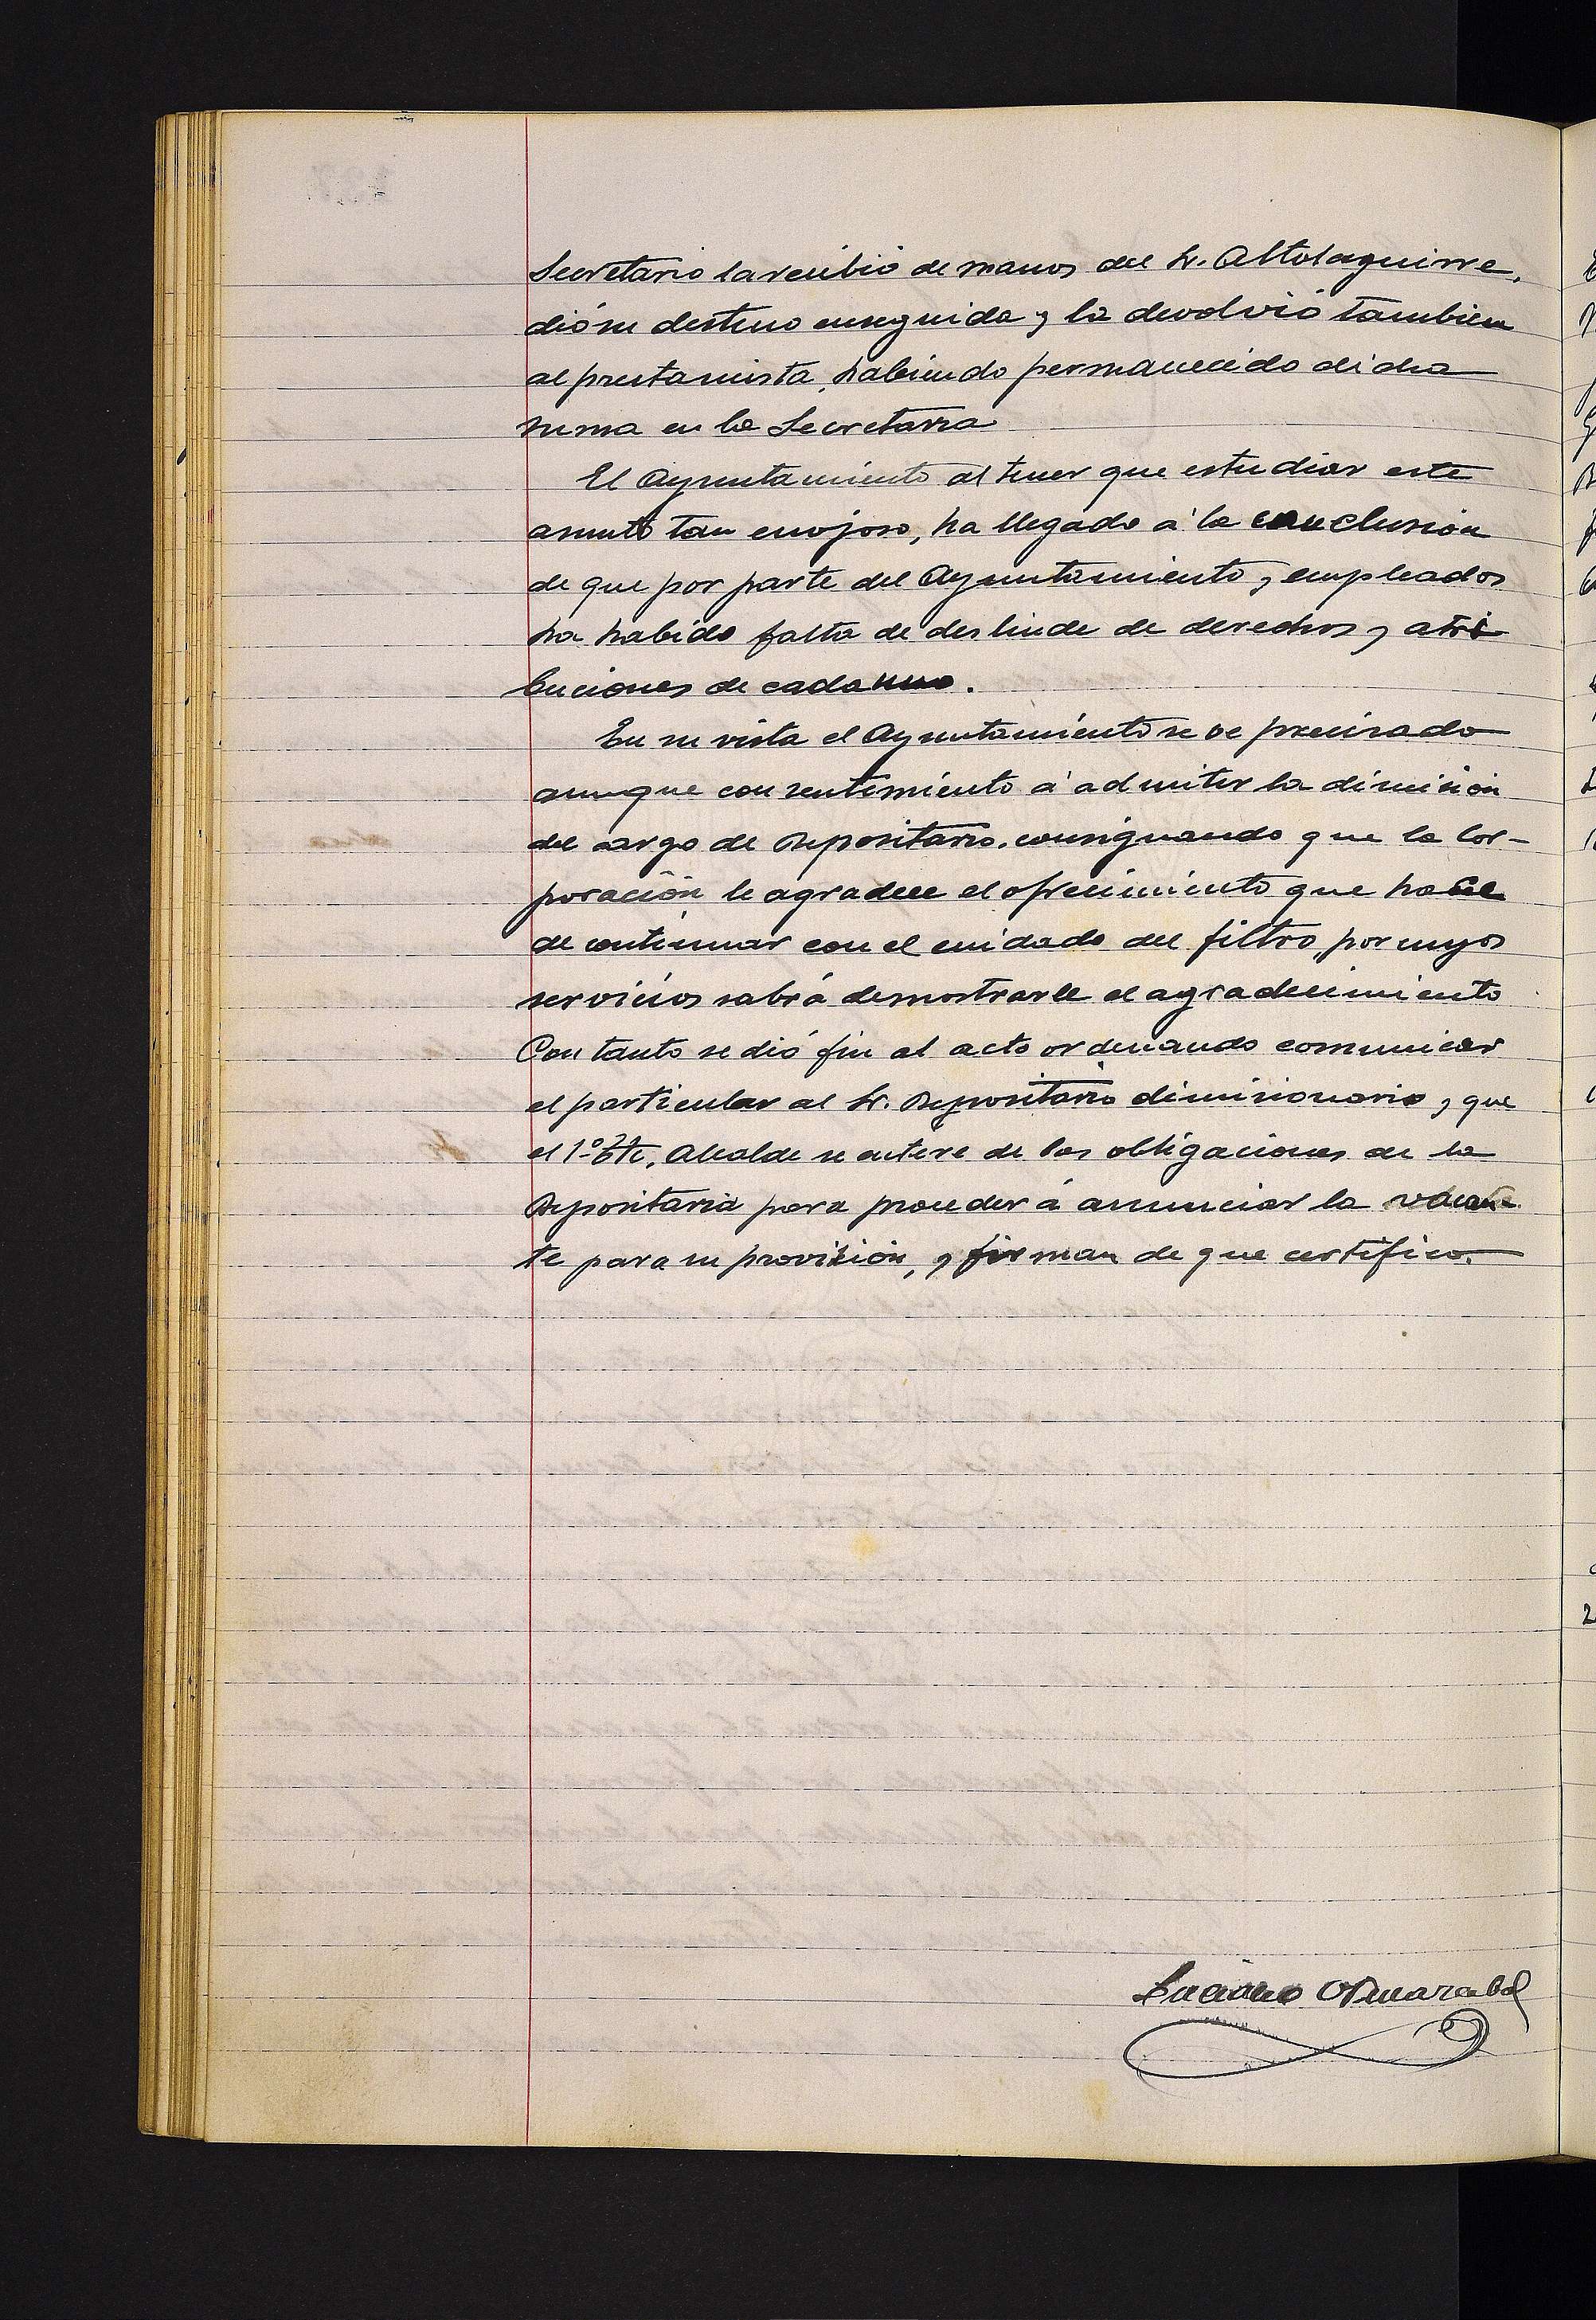 Secretario la recibió de manos del Sr. Altolaguirre,
dió su destino enseguida y la devolvió tambien
al prestamista, habiendo permanecido dicha
suma en la Secretaria
El Ayuntamiento al tener que estudiar este
asunto tan enojoso, ha llegado á la conclusión
de que por parte del Ayuntamiento y empleados
ha habido falta de deslinde de derechos y atri
buciones de cada uno.
En su vista el Ayuntamiento se ve precisado
aunque con sentimiento á admitir la dimisión
del cargo de Depositario, consignando que la Cor-
poración le agradece el ofrecimiento que hace
de continuar con el cuidado del filtro, por cuyos
servicios sabrá demostrarle el agradecimiento
Con tanto se dió fin al acto ordenando comunicar
el particular al Sr. Depositario dimisionario y que
el 1º Tte. Alcalde se entere de las obligaciones de la
Depositaria para proceder á anunciar la vacan
te para su provisión, y firman de que certifico.
Luciano